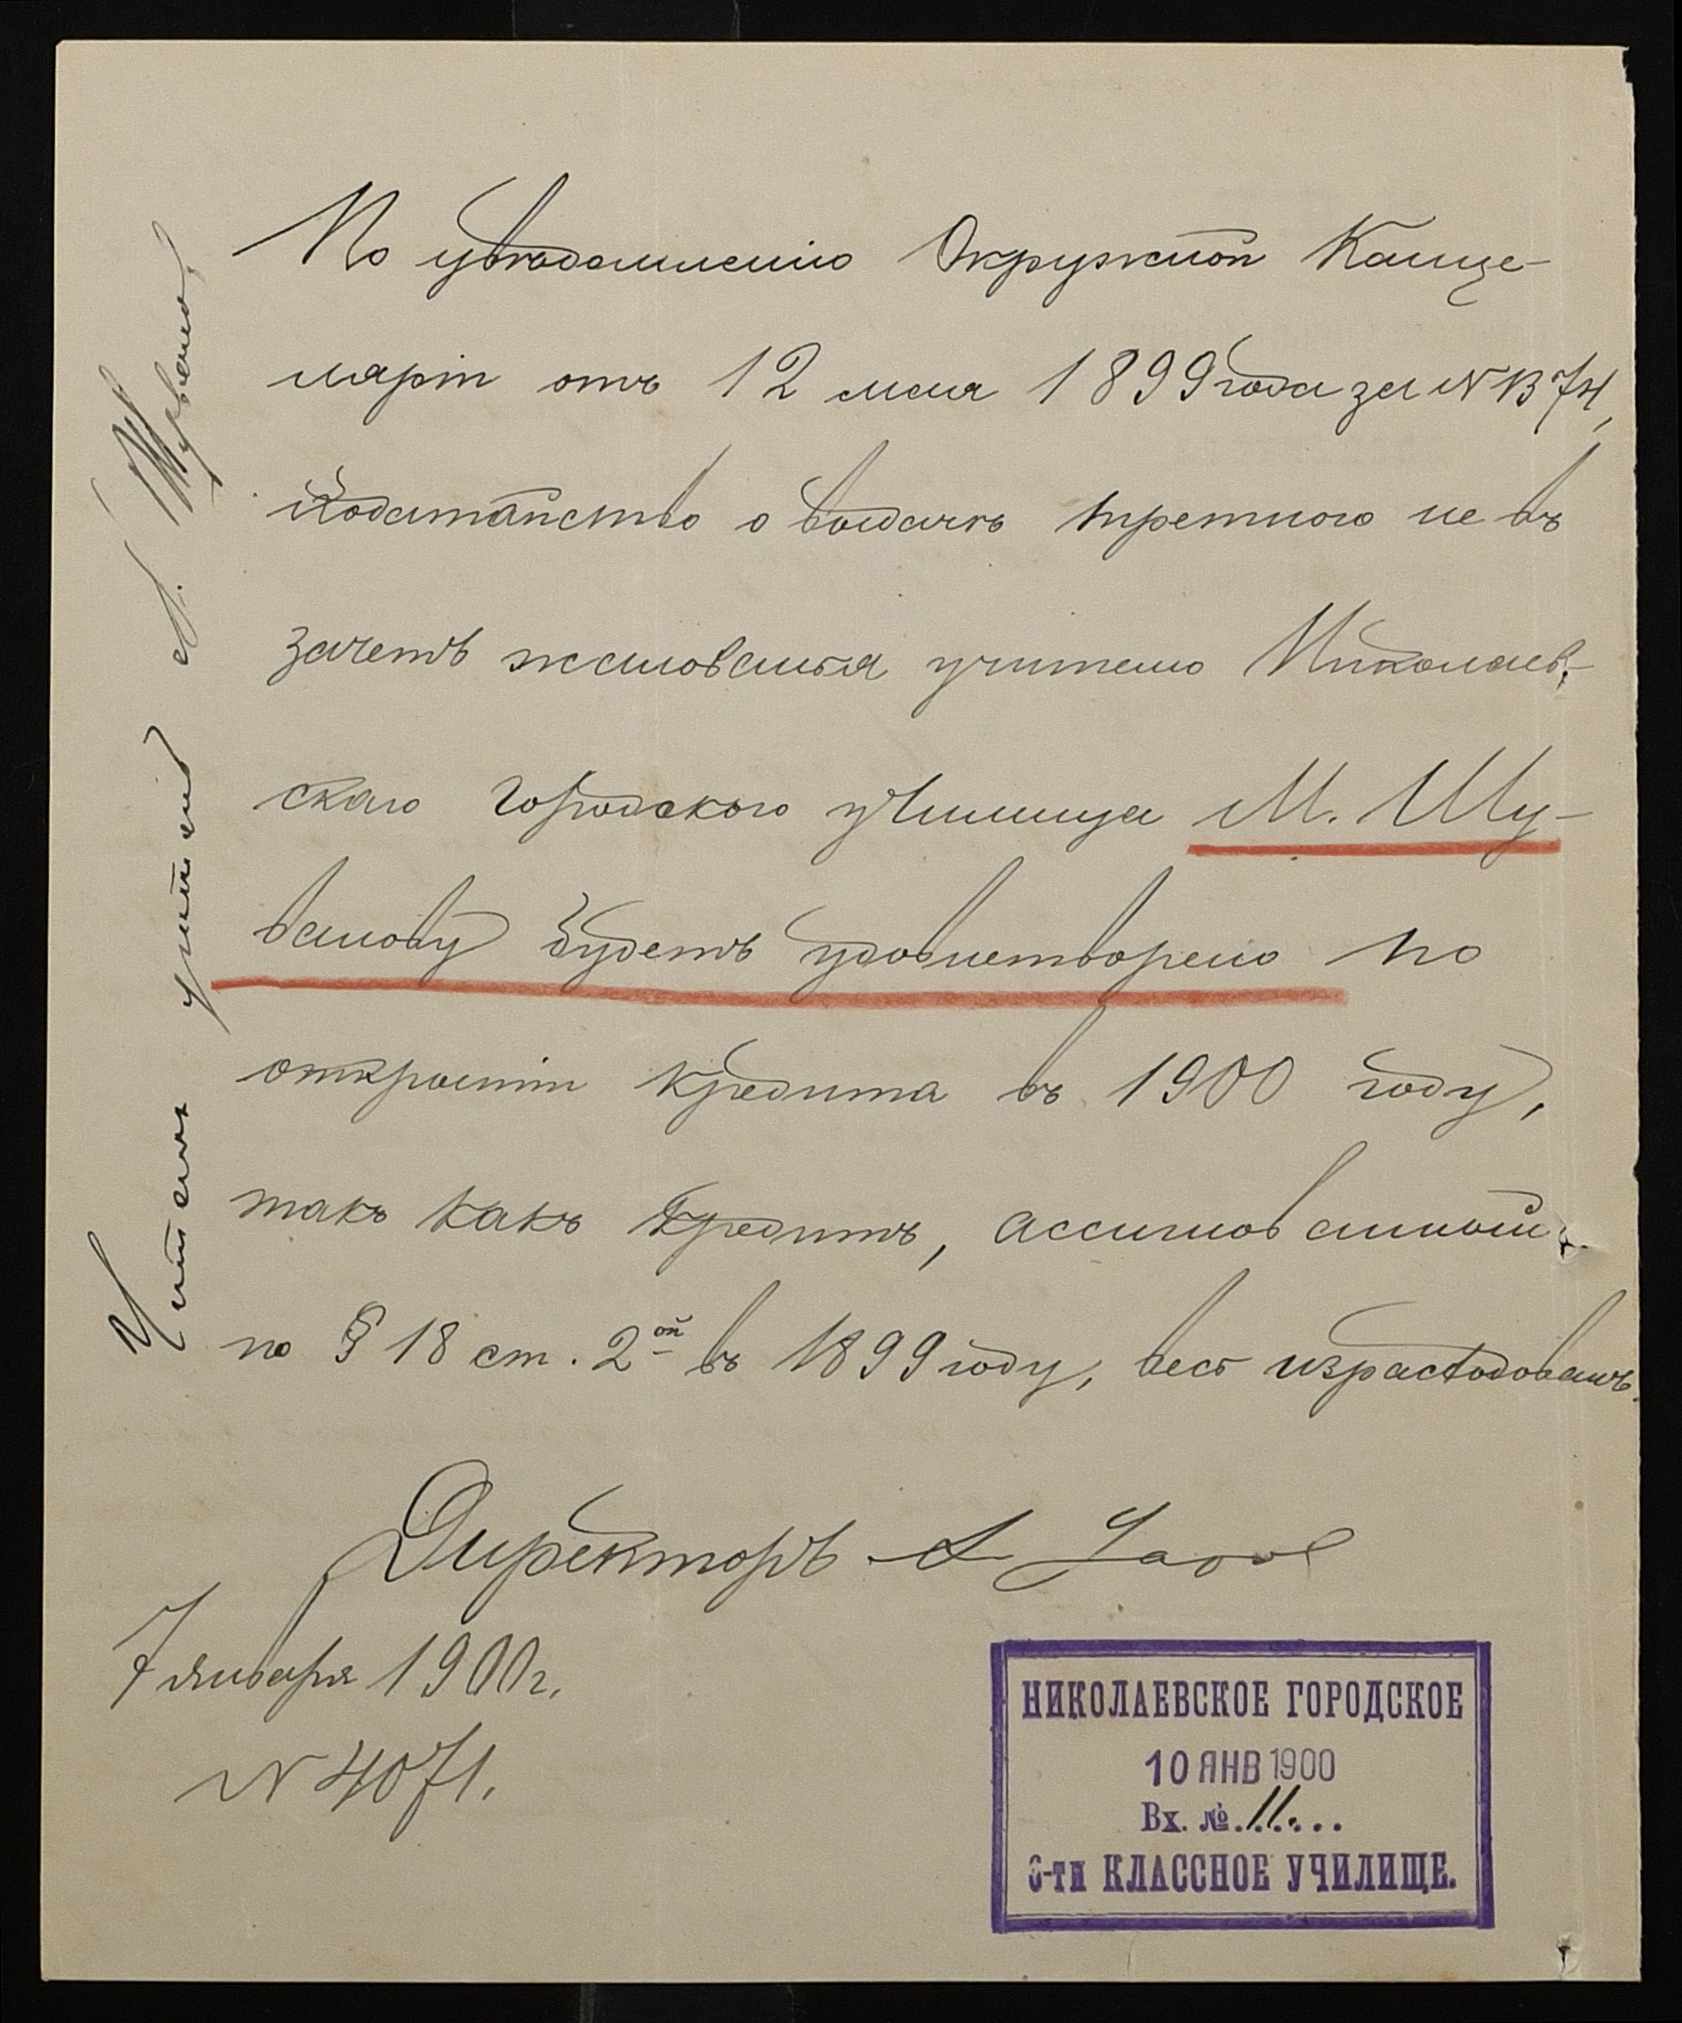 По увѣдомленію Окружной Канце-
ляріи отъ 12 мая 1899 года за № 1374,
ходатайство о выдачѣ третного не въ
зачетъ жалованья учителю Николаев-
скаго городского училища М. Шу-
валову будетъ удовлетворено по
открытіи кредита въ 1900 году,
такъ какъ кредитъ, ассигнованный
по § 18 ст. 2ой въ 1899 году, весь израсходованъ.
Директоръ А
7 января 1900 г.
№ 4071.
Читалъ учитель М. Шуваловъ
НИКОЛАЕВСКОЕ ГОРОДСКОЕ
10 ЯНВ 1900
Вх. № 11
3-ти КЛАССНОЕ УЧИЛИЩЕ.